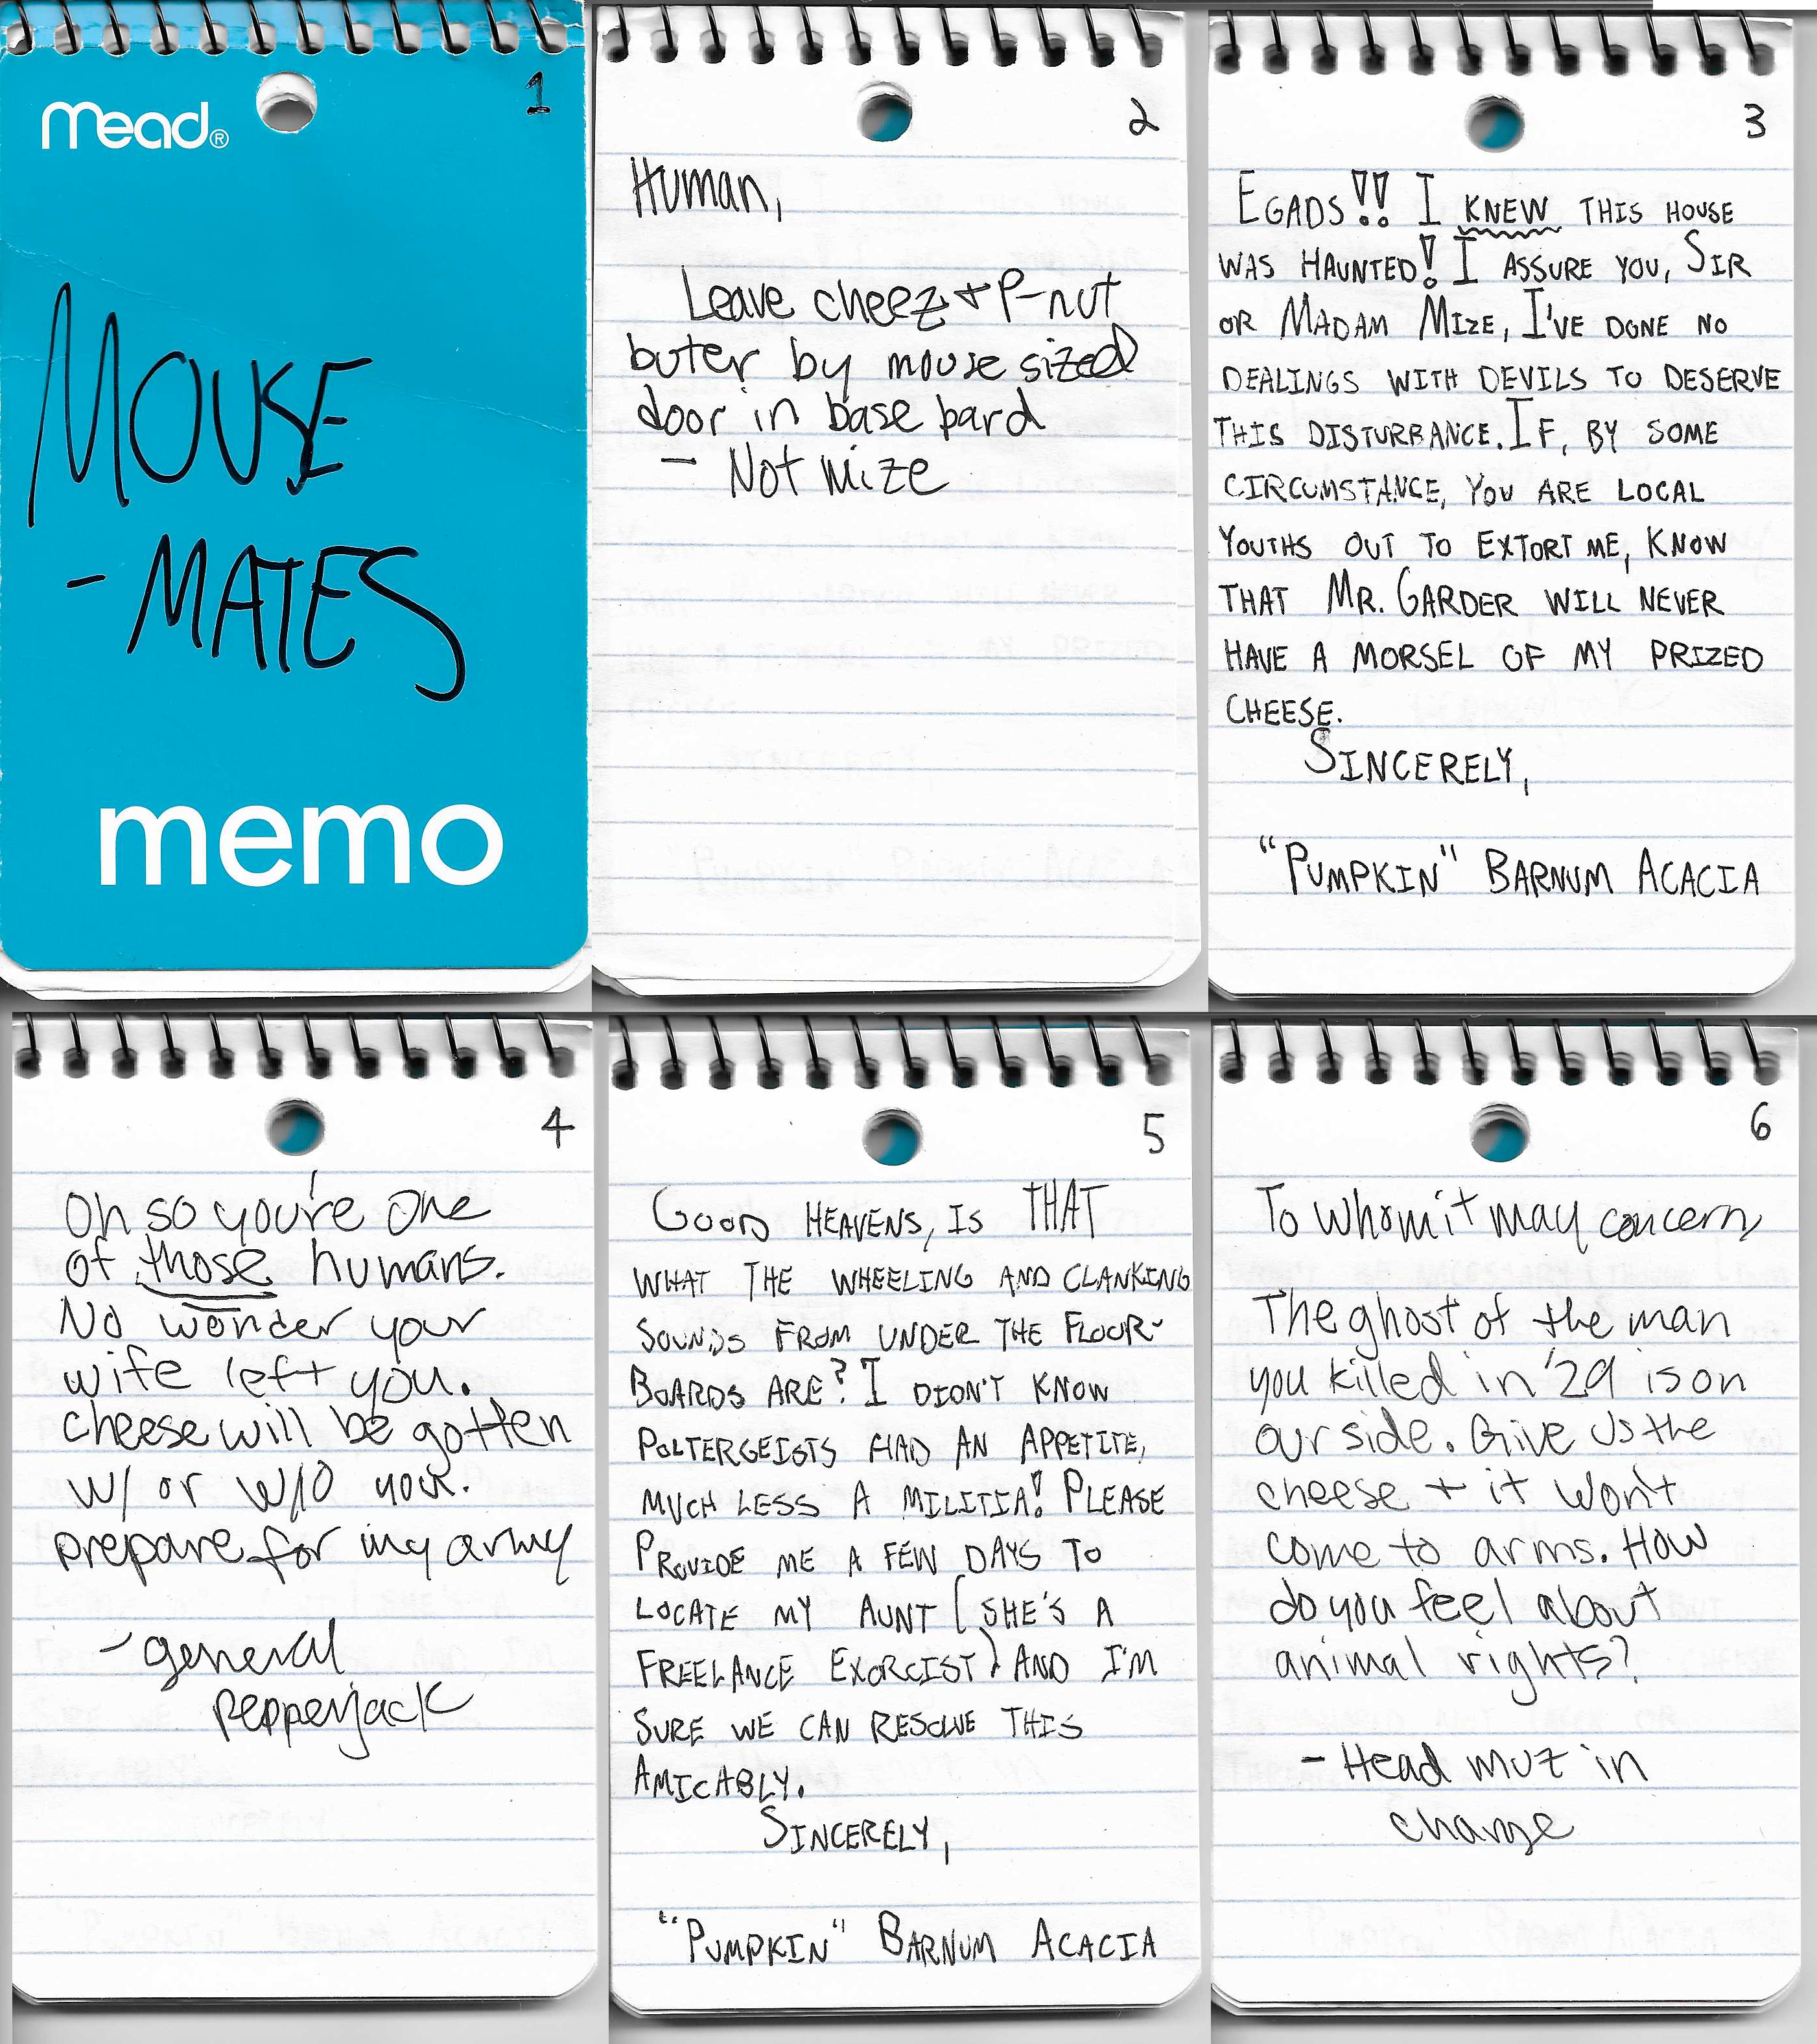 mead®
1
MOUSE
- MATES
memo
2
Human,
Leave cheez + P-nut
buter by mouse sized
door in base bard
- Not Mize
3
EGADS!! I KNEW THIS HOUSE
WAS HAUNTED! I ASSURE YOU, SIR
OR MADAM MIZE, I'VE DONE NO
DEALINGS WITH DEVILS TO DESERVE
THIS DISTURBANCE. IF, BY SOME
CIRCUMSTANCE, YOU ARE LOCAL
YOUTHS OUT TO EXTORT ME, KNOW
THAT MR. GARDER WILL NEVER
HAVE A MORSEL OF MY PRIZED
CHEESE.
SINCERELY,
"PUMPKIN" BARNUM ACACIA
4
Oh so you're one
of those humans.
No wonder your
wife left you.
cheese will be gotten
w/ or w/o you.
prepare for my army
- general
pepperjack
5
GOOD HEAVENS, IS THAT
WHAT THE WHEELING AND CLANKING
SOUNDS FROM UNDER THE FLOOR-
BOARDS ARE? I DIDN'T KNOW
POLTERGEISTS HAD AN APPETITE,
MUCH LESS A MILITIA! PLEASE
PROVIDE ME A FEW DAYS TO
LOCATE MY AUNT (SHE'S A
FREELANCE EXORCIST) AND I'M
SURE WE CAN RESOLVE THIS
AMICABLY.
SINCERELY,
"PUMPKIN" BARNUM ACACIA
6
To whom it may concern
The ghost of the man
you killed in '29 is on
our side. Give us the
cheese + it won't
come to arms. How
do you feel about
animal rights?
- Head muz in
charge